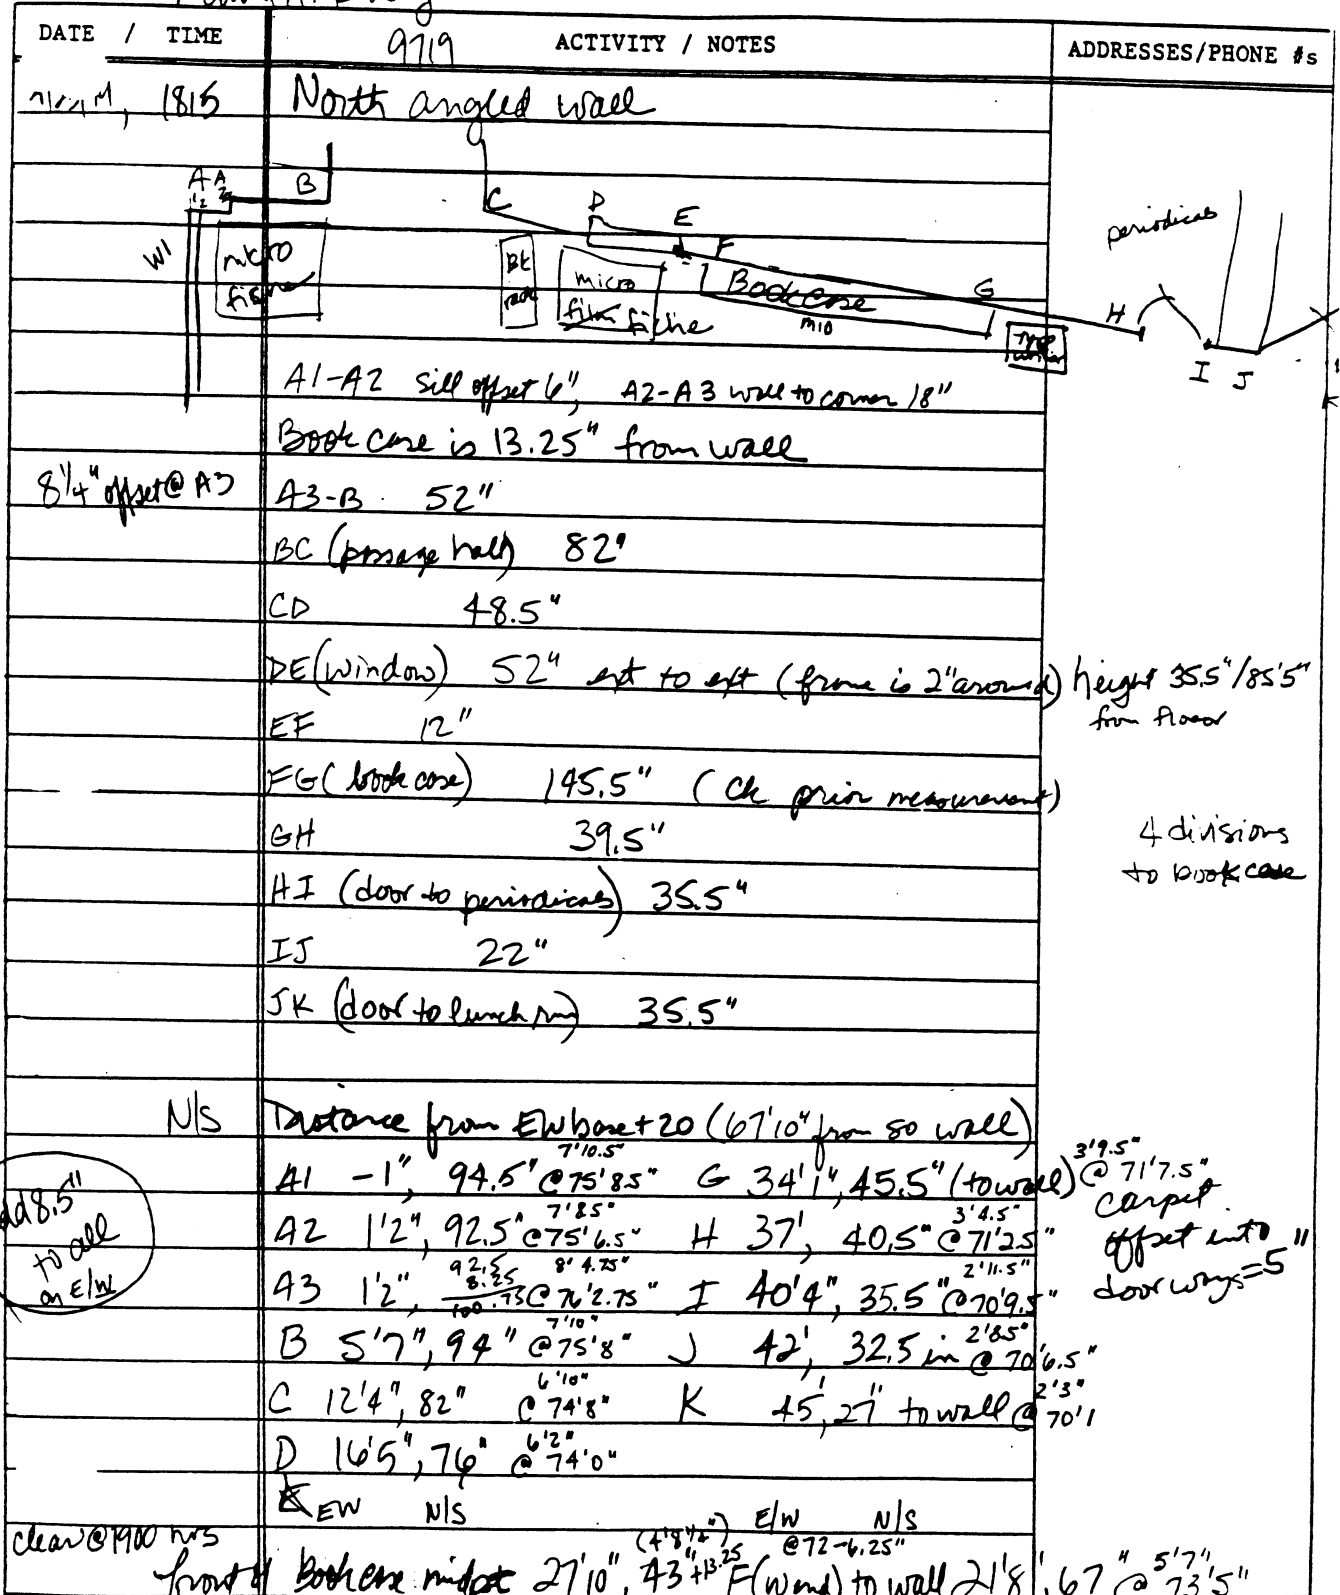 DATE / TIME
9719
ACTIVITY / NOTES
ADDRESSES/PHONE #s
1815
North angled wall
A A B
1 2 3
W1
micro
fiche
C
Bk
rack
D
micro
film fiche
E
F
Bookcase
M10
G
type
writer
H
periodicals
I J
K
A1-A2 sill offset 6", A2-A3 wall to corner 18"
Book case is 13.25" from wall
8 1/4" offset @ A3
A3-B 52"
BC (passage hall) 82"
CD 48.5"
DE (window) 52" ext to ext (frame is 2" around) height 35.5"/85'5"
from floor
EF 12"
FG (book case) 145.5" (ck prior measurement)
GH 39.5"
4 divisions
to bookcase
HI (door to periodicals) 35.5"
IJ 22"
JK (door to lunch rm) 35.5"
N/S Distance from EW base + 20 (67'10" from so wall)
add 8.5"
to all
on E/W
A1 -1", 94.5" 7'10.5" @ 75'8.5" G 34'1", 45.5" (to wall) 3'9.5" @ 71'7.5"
A2 1'2", 92.5" 7'8.5" @ 75'6.5" H 37', 40.5" 3'4.5" @ 71'2.5"
A3 1'2", 92.5 8.25 100.75 8'4.75" @ 76'2.75" I 40'4", 35.5" 2'11.5" @ 70'9.5"
carpet
offset into
doorways = 5"
B 5'7", 94" 7'10" @ 75'8" J 42', 32.5 in 2'8.5" @ 70'6.5"
C 12'4", 82" 6'10" @ 74'8" K 45', 27" to wall 2'3" @ 70'1
D 16'5", 76" 6'2" @ 74'0"
EW N/S E/W N/S
clear @ 1900 hrs
front of Bookcase midpt 27'10", 43" +13.25 (4'8 1/4") @ 72-6.25" F (W end) to wall 21'8", 67" 5'7" @ 73'5"